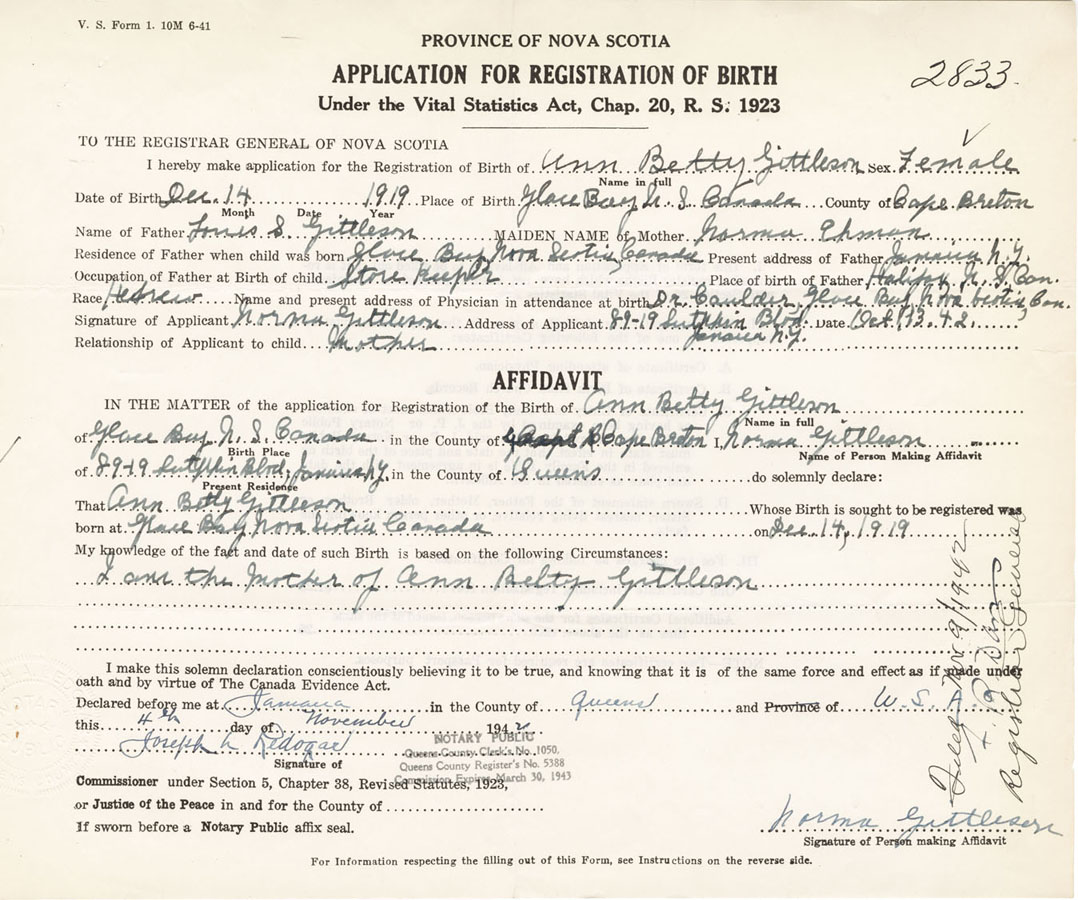 V. S. Form 1. 10M 6-41
PROVINCE OF NOVA SCOTIA
APPLICATION FOR REGISTRATION OF BIRTH
2833.
Under the Vital Statistics Act, Chap. 20, R. S. 1923
TO THE REGISTRAR GENERAL OF NOVA SCOTIA
I hereby make application for the Registration of Birth of Ann Betty Gittleson Sex Female
Name in full
Date of Birth Dec. 14 1919 Place of Birth Glace Bay N. S. Canada County of Cape Breton
Month Date Year
Name of Father Louis S. Gittleson MAIDEN NAME of Mother Norma Ehman
Residence of Father when child was born Glace Bay Nova Scotia, Canada Present address of Father Jamaica N.Y.
Occupation of Father at Birth of child Store Keeper Place of birth of Father Halifax N. S. Can.
Race Hebrew Name and present address of Physician in attendance at birth Dr. Caulder, Glace Bay, Nova Scotia, Can.
Signature of Applicant Norma Gittleson Address of Applicant 89-19 Sutphin Blvd. Date Oct. 13. 42
Jamaica N.Y.
Relationship of Applicant to child Mother
AFFIDAVIT
IN THE MATTER of the application for Registration of the Birth of Ann Betty Gittleson
Name in full
of Glace Bay N. S. Canada in the County of Cape Breton I, Norma Gittleson
Birth Place Name of Person Making Affidavit
of 89-19 Sutphin Blvd, Jamaica N.Y. in the County of Queens do solemnly declare:
Present Residence
That Ann Betty Gittleson Whose Birth is sought to be registered was
born at Glace Bay Nova Scotia Canada on Dec. 14, 1919
My knowledge of the fact and date of such Birth is based on the following Circumstances:
I am the Mother of Ann Betty Gittleson
I make this solemn declaration conscientiously believing it to be true, and knowing that it is of the same force and effect as if made under
oath and by virtue of The Canada Evidence Act.
Declared before me at Jamaica in the County of Queens and Province of U. S. A.
this 4th day of November 1942
Joseph
NOTARY PUBLIC
Queens County Clerk's No. 1050,
Queens County Register's No. 5388
Commission Expires March 30, 1943
Signature of
Commissioner under Section 5, Chapter 38, Revised Statutes, 1923,
or Justice of the Peace in and for the County of
If sworn before a Notary Public affix seal.
Norma Gittleson
Signature of Person making Affidavit
For Information respecting the filling out of this Form, see Instructions on the reverse side.
Filed Nov 9/1942
Registrar General